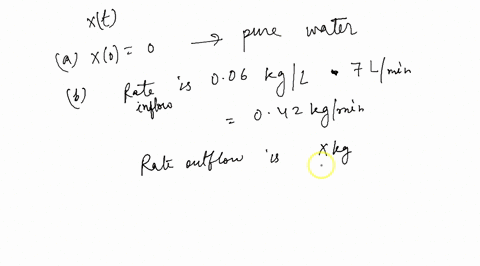 x(t)
(a) x(0) = 0 → pure water
(b) Rate inflow is 0.06 kg/L • 7 L/min
= 0.42 kg/min
Rate outflow is x kg